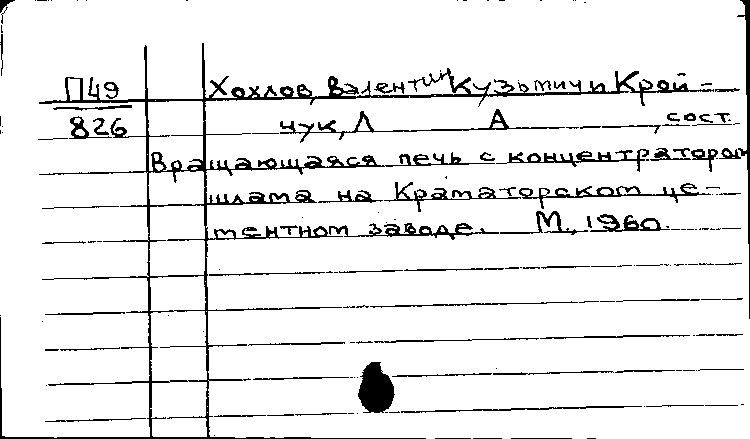 П49 Хохлов, Валентин Кузьмич и Крой-
826 чук, Л А , сост.
Вращающаяся печь с концентратором
шлама на Краматорском це-
ментном заводе. М., 1960.